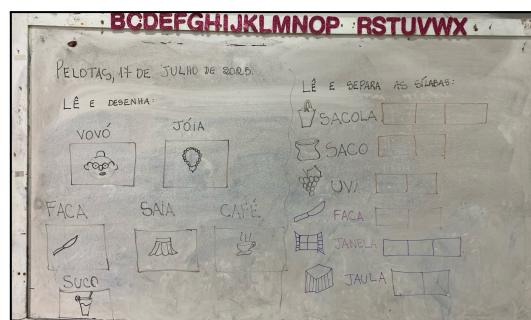 BCDEFGHIJKLMNOP RSTUVWX
PELOTAS, 17 DE JULHO DE 2025.
LÊ E DESENHA:
VOVÓ
JÓIA
FACA
SAIA
CAFÉ
SUCO
LÊ E SEPARA AS SÍLABAS:
SACOLA
SACO
UVA
FACA
JANELA
JAULA